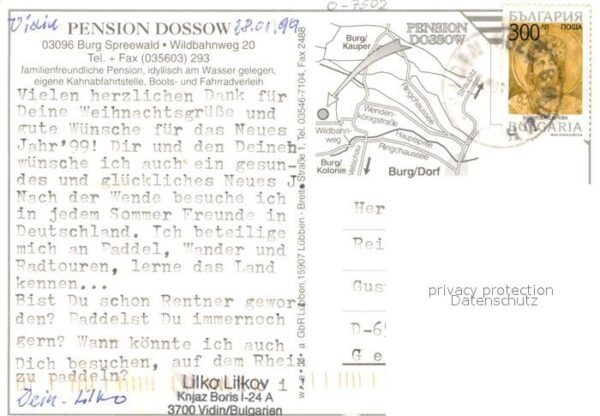 O-7502
Vidin 28.01.99
PENSION DOSSOW
03096 Burg Spreewald • Wildbahnweg 20
Tel. + Fax (035603) 293
familienfreundliche Pension, idyllisch am Wasser gelegen,
eigene Kahnabfahrtstelle, Boots- und Fahrradverleih
Vielen herzlichen Dank für
Deine Weihnachtsgrüße und
gute Wünsche für das Neues
Jahr'99! Dir und den Deineh
wünsche ich auch ein gesun-
des und glückliches Neues J
Nach der Wende besuche ich
in jedem Sommer Freunde in
Deutschland. Ich beteilige
mich an Paddel, Wander und
Radtouren, lerne das Land
kennen...
Bist Du schon Rentner gewor
den? Paddelst Du immernoch
gern? Wann könnte ich auch
Dich besuchen, auf dem Rhein
zu paddeln?
Dein-Lilko
Lilko Lilkov
Knjaz Boris I-24 A
3700 Vidin/Bulgarien
a GbR Lübben, 15907 Lübben - Breite Straße 1, Tel. 03546-7104, Fax 2488
PENSION
DOSSOW
Burg/
Kauper
Straupitz
Ringchaussee
Wenden-
königstraße
Wildbahn-
weg
Hauptspree
Ringchaussee
Burg/
Kolonie
Vetschau
Burg/Dorf
БЪЛГАРИЯ
300 ЛВ ПОЩА
BULGARIA
Her
Rei
Gus
D-65
G e
privacy protection
Datenschutz